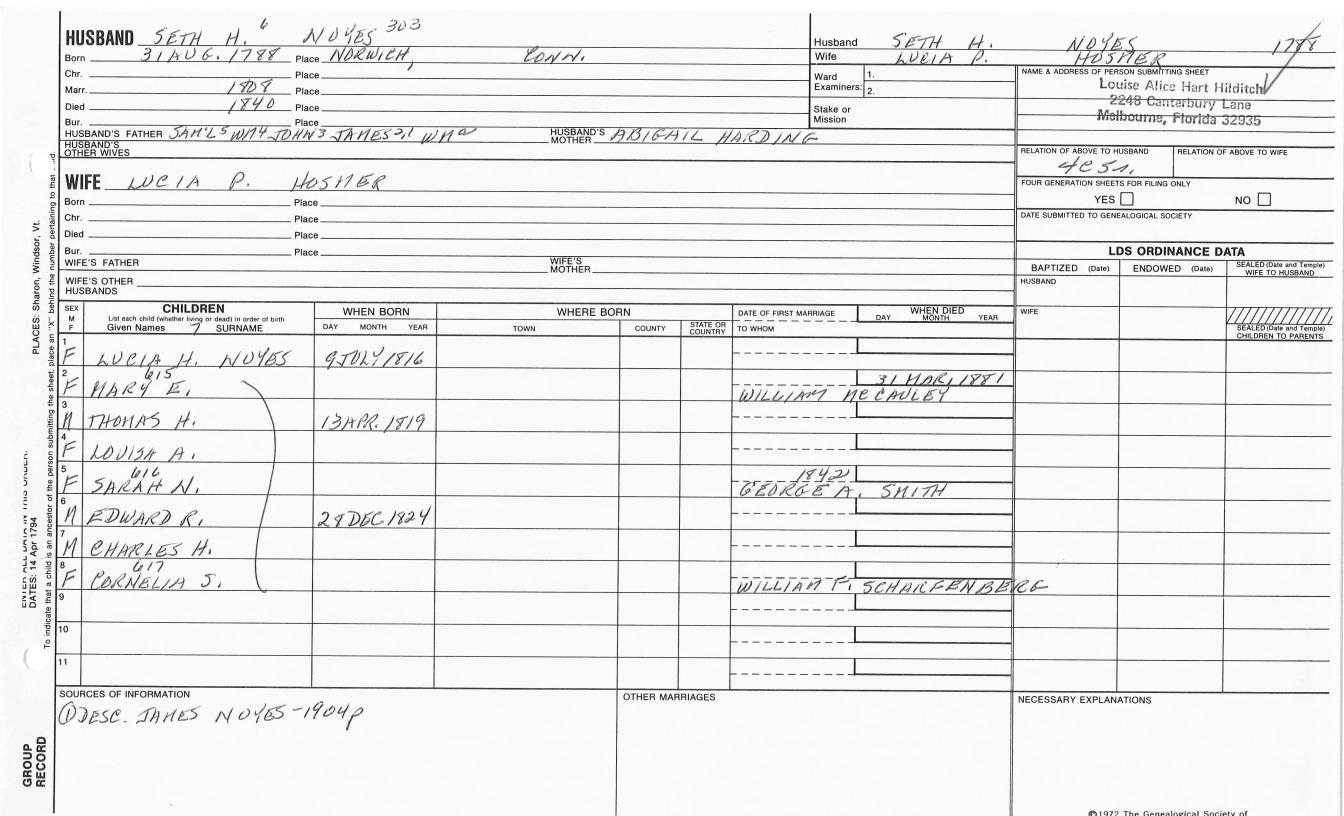 HUSBAND SETH H. 6 NOYES 303
Born 31 AUG. 1788 Place NORWICH, CONN.
Chr. Place
Marr. 1808 Place
Died 1840 Place
Bur. Place
HUSBAND'S FATHER SAM'L 5 WM 4 JOHN 3 JAMES 2,1 WM a HUSBAND'S MOTHER ABIGAIL HARDING
HUSBAND'S OTHER WIVES
Husband SETH H. NOYES 1788
Wife LUCIA P. HOSMER
Ward Examiners: 1.
2.
Stake or Mission
NAME & ADDRESS OF PERSON SUBMITTING SHEET
Louise Alice Hart Hilditch
2248 Canterbury Lane
Melbourne, Florida 32935
RELATION OF ABOVE TO HUSBAND RELATION OF ABOVE TO WIFE
4C5r.
FOUR GENERATION SHEETS FOR FILING ONLY
YES NO
DATE SUBMITTED TO GENEALOGICAL SOCIETY
WIFE LUCIA P. HOSMER
Born Place
Chr. Place
Died Place
Bur. Place
WIFE'S FATHER WIFE'S MOTHER
WIFE'S OTHER HUSBANDS
LDS ORDINANCE DATA
BAPTIZED (Date) ENDOWED (Date) SEALED (Date and Temple) WIFE TO HUSBAND
HUSBAND
WIFE
SEALED (Date and Temple) CHILDREN TO PARENTS
SEX M F CHILDREN WHEN BORN WHERE BORN DATE OF FIRST MARRIAGE WHEN DIED
List each child (whether living or dead) in order of birth
Given Names 7 SURNAME DAY MONTH YEAR TOWN COUNTY STATE OR COUNTRY TO WHOM DAY MONTH YEAR
1 F LUCIA H. NOYES 9 JULY 1816
615
2 F MARY E. 31 MAR, 1881
WILLIAM McCAULEY
3 M THOMAS H. 13 APR. 1819
4 F LOUISA A.
616
5 F SARAH N. 1842
GEORGE A. SMITH
6 M EDWARD R. 28 DEC 1824
7 M CHARLES H.
617
8 F CORNELIA J. WILLIAM F. SCHARFENBERG
9
10
11
SOURCES OF INFORMATION OTHER MARRIAGES NECESSARY EXPLANATIONS
① DESC. JAMES NOYES-1904p
©1972 The Genealogical Society of
GROUP RECORD
DATES: 14 Apr 1794
PLACES: Sharon, Windsor, Vt.
To indicate that a child is an ancestor of the person submitting the sheet, place an "X" behind the number pertaining to that